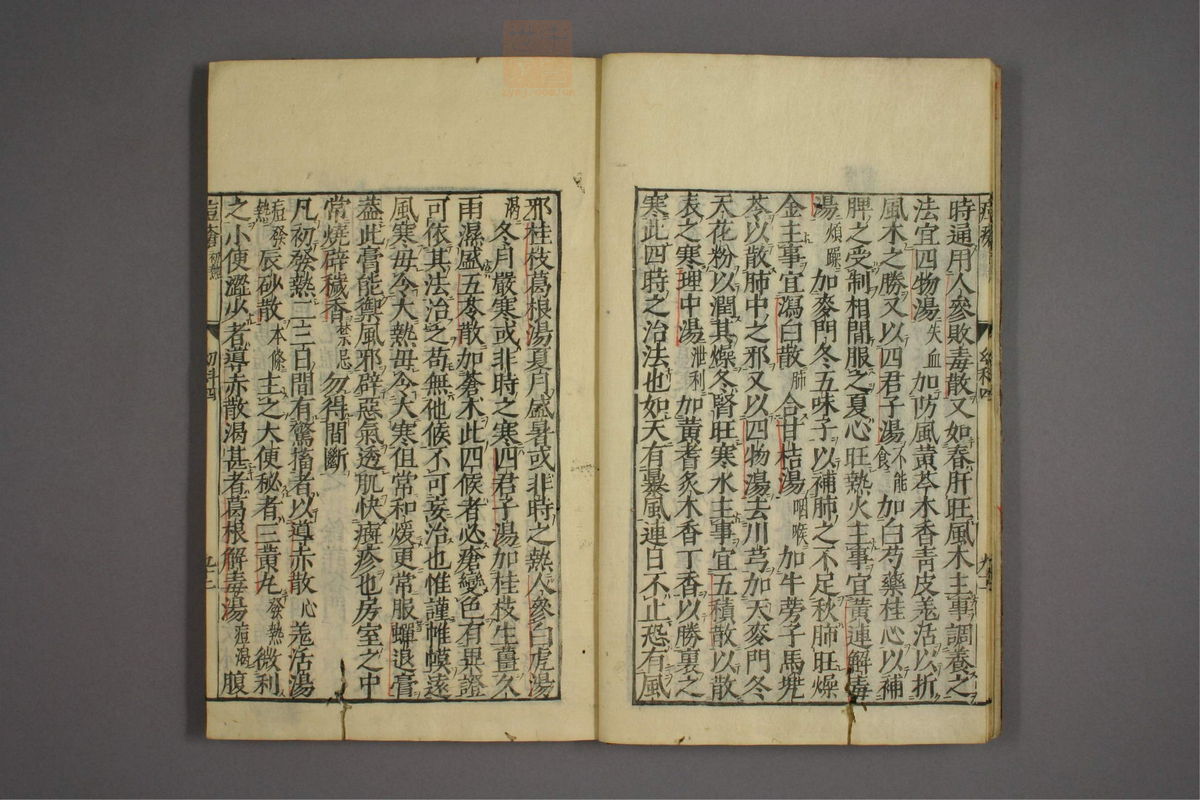 時通用人參敗毒散又如春肝旺風木主事調養之
法宜四物湯失血加防風黃芩木香青皮羗活以折
風木之勝又以四君子湯不能食加白芍藥桂心以補
脾之受制相間服之夏心旺熱火主事宜黃連解毒
湯煩躁加麥門冬五味子以補肺之不足秋肺旺燥
金主事宜瀉白散肺合甘桔湯咽喉加牛蒡子馬兜
苓以散肺中之邪又以四物湯去川芎加天麥門冬
天花粉以潤其燥冬腎旺寒水主事宜五積散以散
表之寒理中湯泄利加黃耆炙木香丁香以勝裏之
寒此四時之治法也如天有暴風連日不止恐有風
邪桂枝葛根湯夏月盛暑或非時之熱人參白虎湯
渴冬月嚴寒或非時之寒四君子湯加桂枝生薑久
雨濕盛五苓散加蒼术此四候者必瘡變色有異證
可依其法治之苟無他候不可妄治也惟謹帷幙遠
風寒毋令大熱毋令大寒但常和煖更常服蟬退膏
葢此膏能禦風邪辟惡氣透肌快癍疹也房室之中
常燒辟穢香禁忌勿得間斷
凡初發熱一二三日間有驚搐者以導赤散心羗活湯
痘發熱辰砂散本條主之大便秘者三黃丸發熱微利
之小便澀少者導赤散渴甚者葛根解毒湯痘渴腹
幼科四
九二